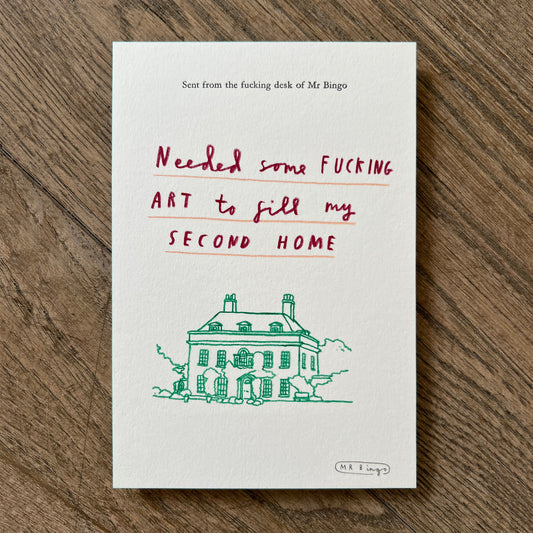 Sent from the fucking desk of Mr Bingo
Needed some FUCKING
ART to fill my
SECOND HOME
MR Bingo